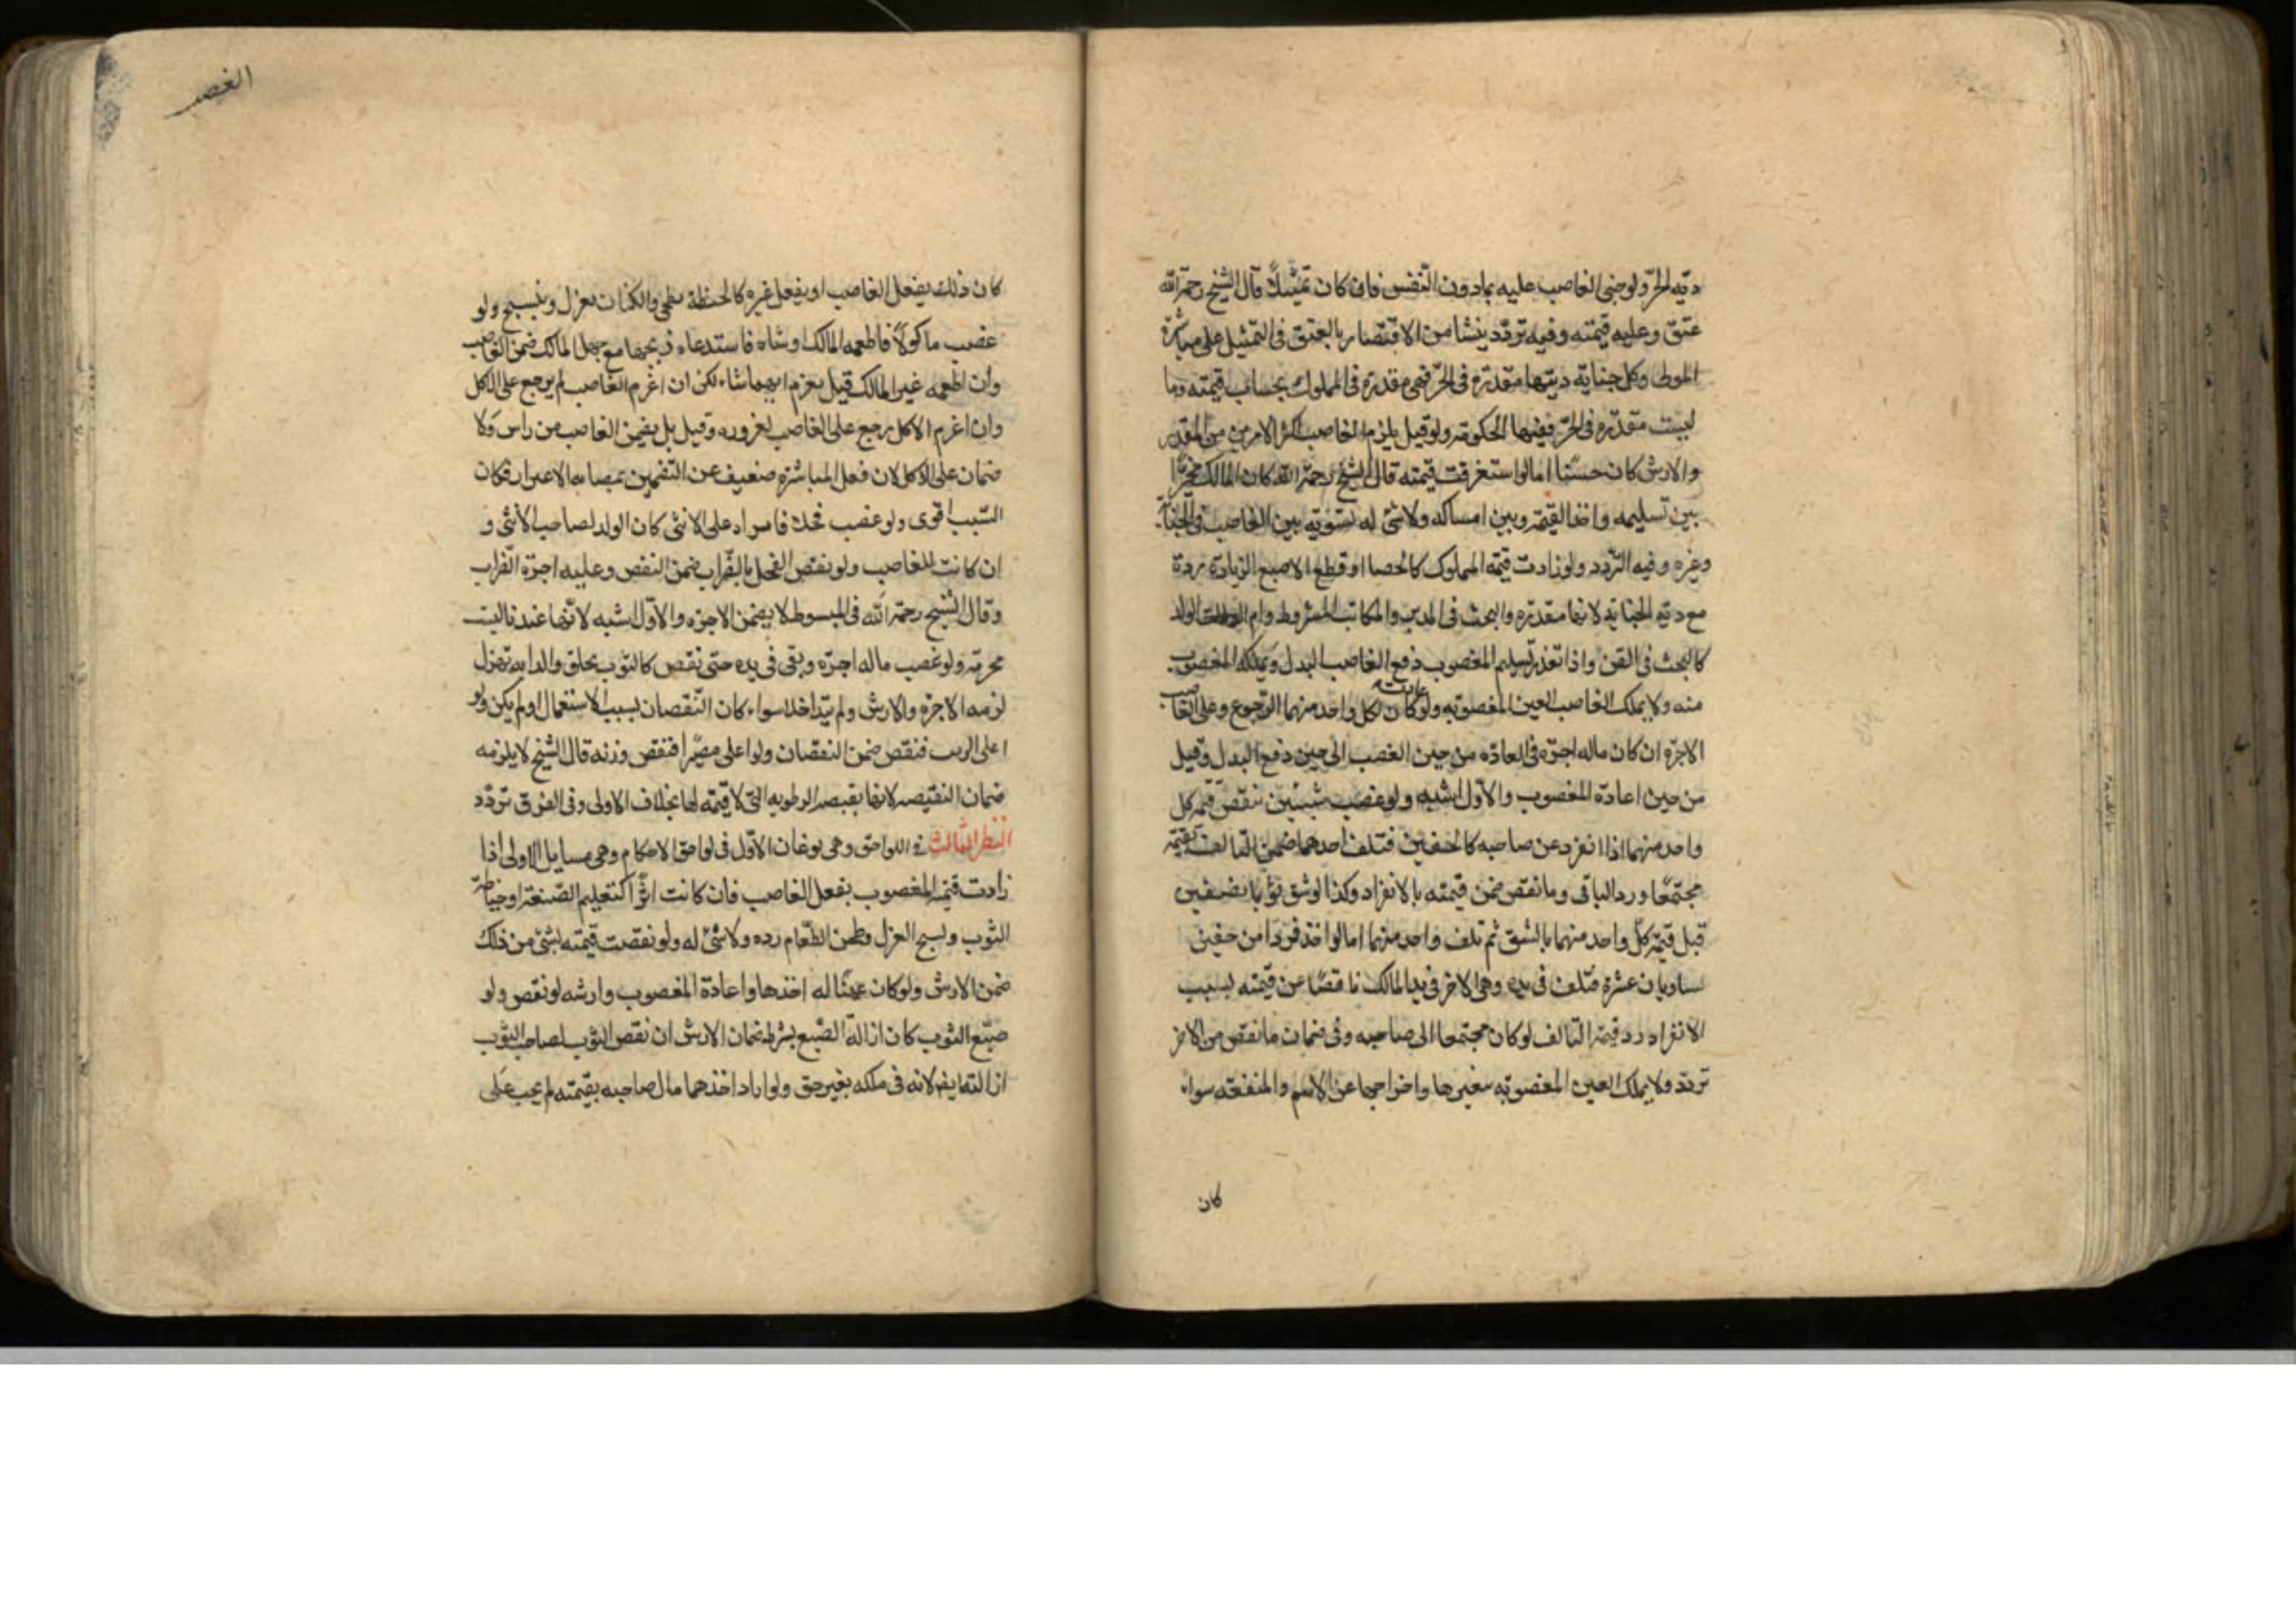 دية الحر ولو جنى الغاصب عليه بما دون النفس فان كان تمثيلاً قال الشيخ رحمه الله
عتق وعليه قيمته وفيه تردد ينشا من الاقتصار بالعتق فى التمثيل على مباشرة
المولى وكل جناية ديتها مقدرة فى الحر فهى مقدرة فى المملوك بحساب قيمته وما
ليست مقدرة فى الحر ففيها الحكومة ولو قيل يلزم الغاصب اكثر الامرين من المقدر
والارش كان حسنا اما لو استغرقت قيمته قال الشيخ رحمه الله كان المالك مخيرا
بين تسليمه واخذ القيمة وبين امساكه ولا شئ له تسوية بين الغاصب فى الجناية
وغيره وفيه التردد ولو زادت قيمة المملوك كالخصا او قطع الاصبع الزيادة رده
مع دية الجناية لانها مقدرة والبحث فى المدبر والمكاتب المشروط وام الولد
كالبحث فى القن واذا تعذر تسليم المغصوب دفع الغاصب البدل ويملكه المغصوب
منه ولا يملك الغاصب العين المغصوبة ولو عادت كان لكل واحد منهما الرجوع وعلى الغاصب
الاجرة ان كان ماله اجرة فى العادة من حين الغصب الى حين دفع البدل وقيل
من حين اعادة المغصوب والاول اشبه ولو غصب شيئين ينقص قيمة كل
واحد منهما اذا انفرد عن صاحبه كالخفين فتلف احدهما ضمن التالف بقيمته
مجتمعا ورد الباقى وما نقص من قيمته بالانفراد وكذا لو شق ثوبا نصفين
قبل قيمة كل واحد منهما بالشق ثم تلف واحد منهما اما لو اخذ فردا من خفين
يساويان عشرة فتلف فى يده وهى الاخر فى يد المالك ناقصا عن قيمته بسبب
الانفراد رد قيمة التالف لو كان مجتمعا الى صاحبه وفى ضمان ما نقص من الاخر
تردد ولا يملك العين المغصوبة بتغييرها واخراجها عن الاسم والمنفعة سواء
كان
الغصب
كان ذلك بفعل الغاصب او بفعل غيره كالحنطة تطحن والكتان يغزل وينسج ولو
غصب ماكولاً فاطعمه المالك او شاه فاستدعاه ذبحها مع جهل المالك ضمن الغاصب
وان اطعمه غير المالك قيل يغرم ايهما شاء لكن ان اغرم الغاصب لم يرجع على الاكل
وان اغرم الاكل رجع على الغاصب لغروره وقيل بل يضمن الغاصب من راس ولا
ضمان على الاكل لان فعل المباشرة ضعيف عن التضمين بمصاحبه الاغترار فكان
السبب اقوى ولو غصب فحلا فانزاه على الانثى كان الولد لصاحب الانثى و
ان كانت للغاصب ولو نقص الفحل بالضراب ضمن النقص وعليه اجرة الضراب
وقال الشيخ رحمه الله فى المبسوط لا يضمن الاجرة والاول اشبه لانها عندنا ليست
محرمة ولو غصب ماله اجرة وبقى فى يده حتى نقص كالثوب يخلق والدابه تهزل
لزمه الاجرة والارش ولم يتداخلا سواء كان النقصان بسبب الاستعمال او لم يكن ولو
اغلى الزيت فنقص ضمن النقصان ولو اغلى عصيرا فنقص وزنه قال الشيخ لا يلزمه
ضمان النقيصه لانها نقيصه الرطوبه التى لا قيمة لها بخلاف الاولى وفى الفرق تردد
النظر الثالث فى اللواحق وهى نوعان الاول فى لواحق الاحكام وهى مسايل الاولى اذا
زادت قيمة المغصوب بفعل الغاصب فان كانت اثراً كتعليم الصنعة او خياطة
الثوب ونسج الغزل وطحن الطعام رده ولا شئ له ولو نقصت قيمته بشئ من ذلك
ضمن الارش ولو كان عينًا له اخذها واعادة المغصوب وارشه لو نقص ولو
صبغ الثوب كان ازالة الصبغ بشرط ضمان الارش ان نقص الثوب لصاحب الثوب
ازالتها يض لانه فى ملكه بغير حق ولو اراد اخذهما مال صاحبه بقيمته لم يجب على